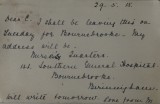 29.3.15.
Dear E. I shall be leaving this on
Tuesday for Bournbrooke. My
address will be.
Nurses Quarters
1st Southern General Hospital
Bournbrooke
Birmingham
will write tomorrow